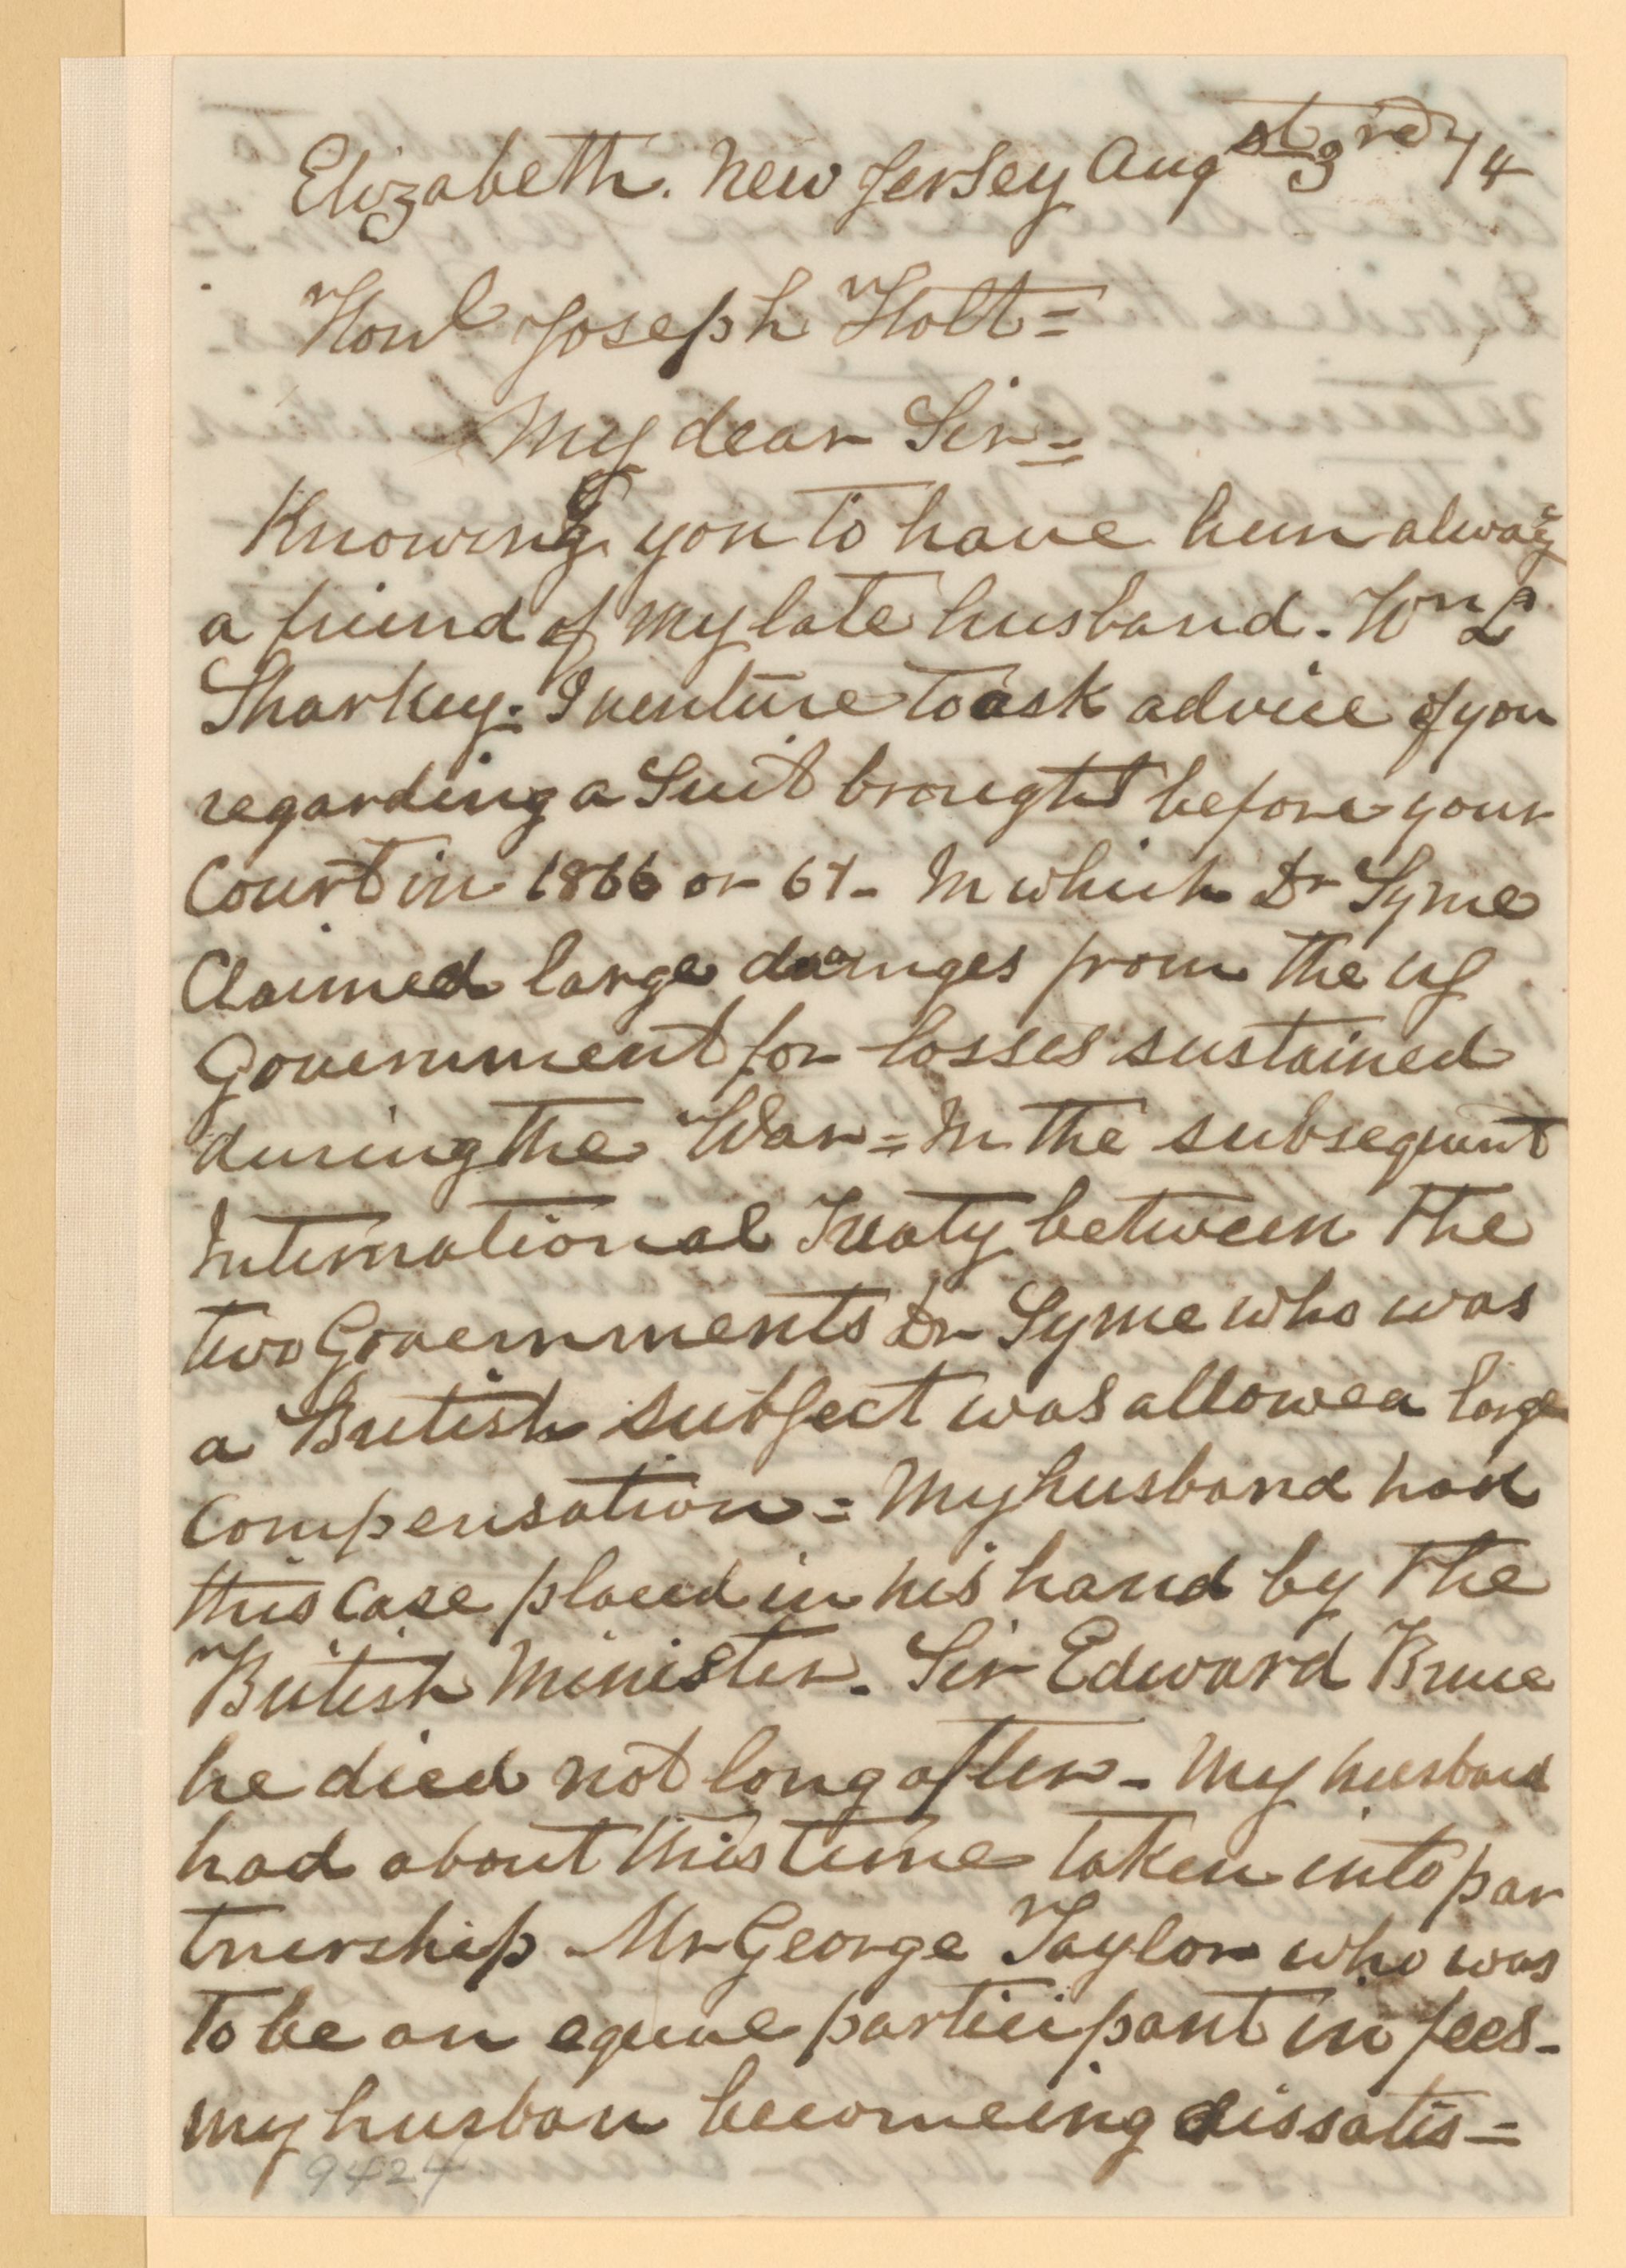 Elizabeth. New Jersey Augst 3rd 74
Honl Joseph Holt =
My dear Sir =
Knowing you to have been always
a friend of my late husband. Wm L
Sharkey. I venture to ask advice of you
regarding a Suit brought before your
Court in 1866 or 67 - In which Dr Syme
Claimed large damages from the US
Government for losses sustained
during the War = In the subsequent
International Treaty between the
two Governments Dr Syme who was
a British subject was allowed large
compensation = My husband had
this case placed in his hand by the
British Minister. Sir Edward Bruce
he died not long after - My husband
had about this time taken into par
tnership Mr George Taylor who was
to be an equal participant in fees -
my husban becomeing dissatis =
9424